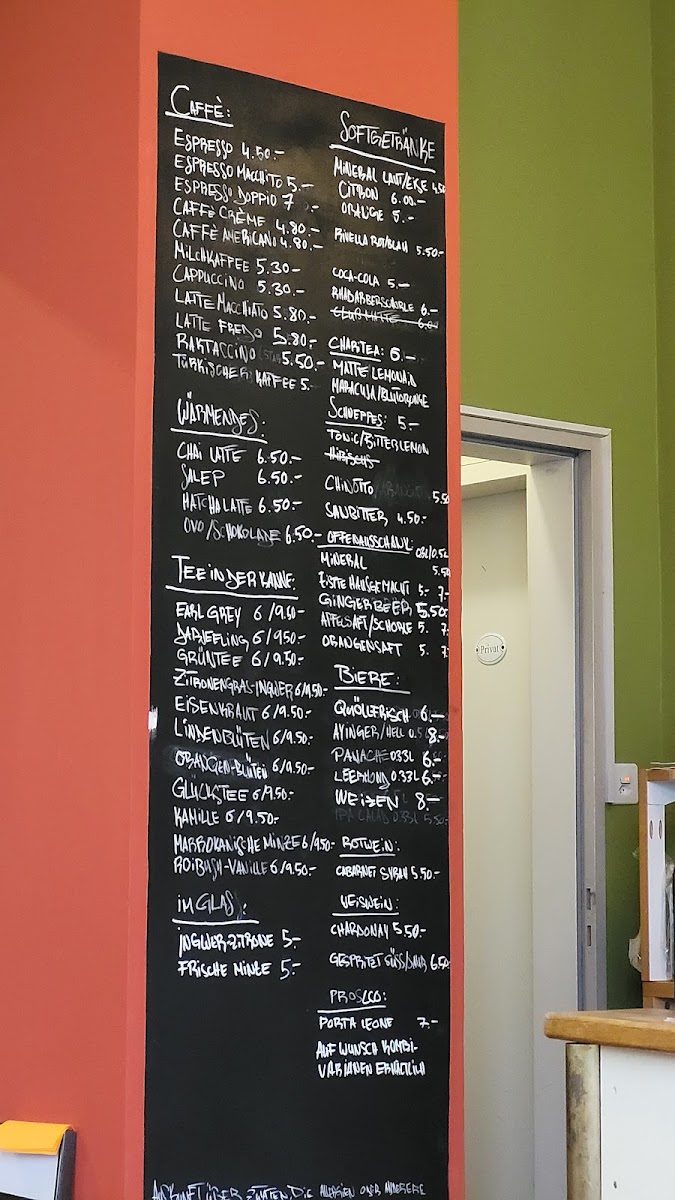 CAFFÈ:
ESPRESSO 4.50.-
ESPRESSO MACCHIATO 5.-
ESPRESSO DOPPIO 7
CAFFÈ CRÈME 4.80.-
CAFFÈ AMERICANO 4.80.-
MILCHKAFFEE 5.30-
CAPPUCCINO 5.30.-
LATTE MACCHIATO 5.80.-
LATTE FREDO 5.80.-
RAKTACCINO 5.50.-
TÜRKISCHER KAFFEE 5.-
WÄRMENDES:
CHAI LATTE 6.50.-
SALEP 6.50.-
MATCHA LATTE 6.50.-
OVO/SCHOKOLADE 6.50.-
TEE IN DER KANNE:
EARL GREY 6/9.50-
DARJEELING 6/950-
GRÜNTEE 6/9.50-
ZITRONENGRAS-INGWER 6/9.50-
EISENKRAUT 6/9.50-
LINDENBLÜTEN 6/9.50-
ORANGEN-BLÜTEN 6/9.50-
GLÜCKSTEE 6/9.50-
KAMILLE 6/9.50-
MARROKANISCHE MINZE 6/9.50-
ROIBUSH-VANILLE 6/9.50-
IM GLAS:
INGWER-ZITRONE 5.-
FRISCHE MINZE 5.-
SOFTGETRÄNKE
MINERAL LAUT/LEISE 4.50
CITRON 6.00.-
ORANGE 5.-
RIVELLA ROT/BLAU 5.50.-
COCA-COLA 5.-
RHABARBERSCHORLE 6.-
CLUB MATTE 6.00
CHARITEA: 6.-
MATTE LEMONAID
MARACUJA/BLUTORANGE
SCHWEPPES: 5.-
TONIC/BITTER LEMON
HIBISCUS
CHINOTTO 5.50
SANBITTER 4.50.-
OFFENAUSSCHANK:
MINERAL 5.50
EISTEE HAUSGEMACHT 5.- 7.-
GINGERBEER 5.50.
APFELSAFT/SCHORLE 5. 7.
ORANGENSAFT 5. 7.
BIERE:
QUÖLLFRISCH 6.-
AYINGER/HELL 8.-
PANACHÉ 0.33L 6.-
LEERMOND 0.33L 6.-
WEIZEN 8.-
ROTWEIN:
CABARNET SYRAH 5.50.-
WEISWEIN:
CHARDONAY 5.50.-
GESPRITZT SÜSS/SAUR 6.50
PROSECCO:
PORTA LEONE 7.-
AUF WUNSCH KOMBI-
VARIANEN ERHÄLTLICH
AUSKUNFT ÜBER ZUTATEN, DIE ALLERGIEN ODER ANDERE
Privat